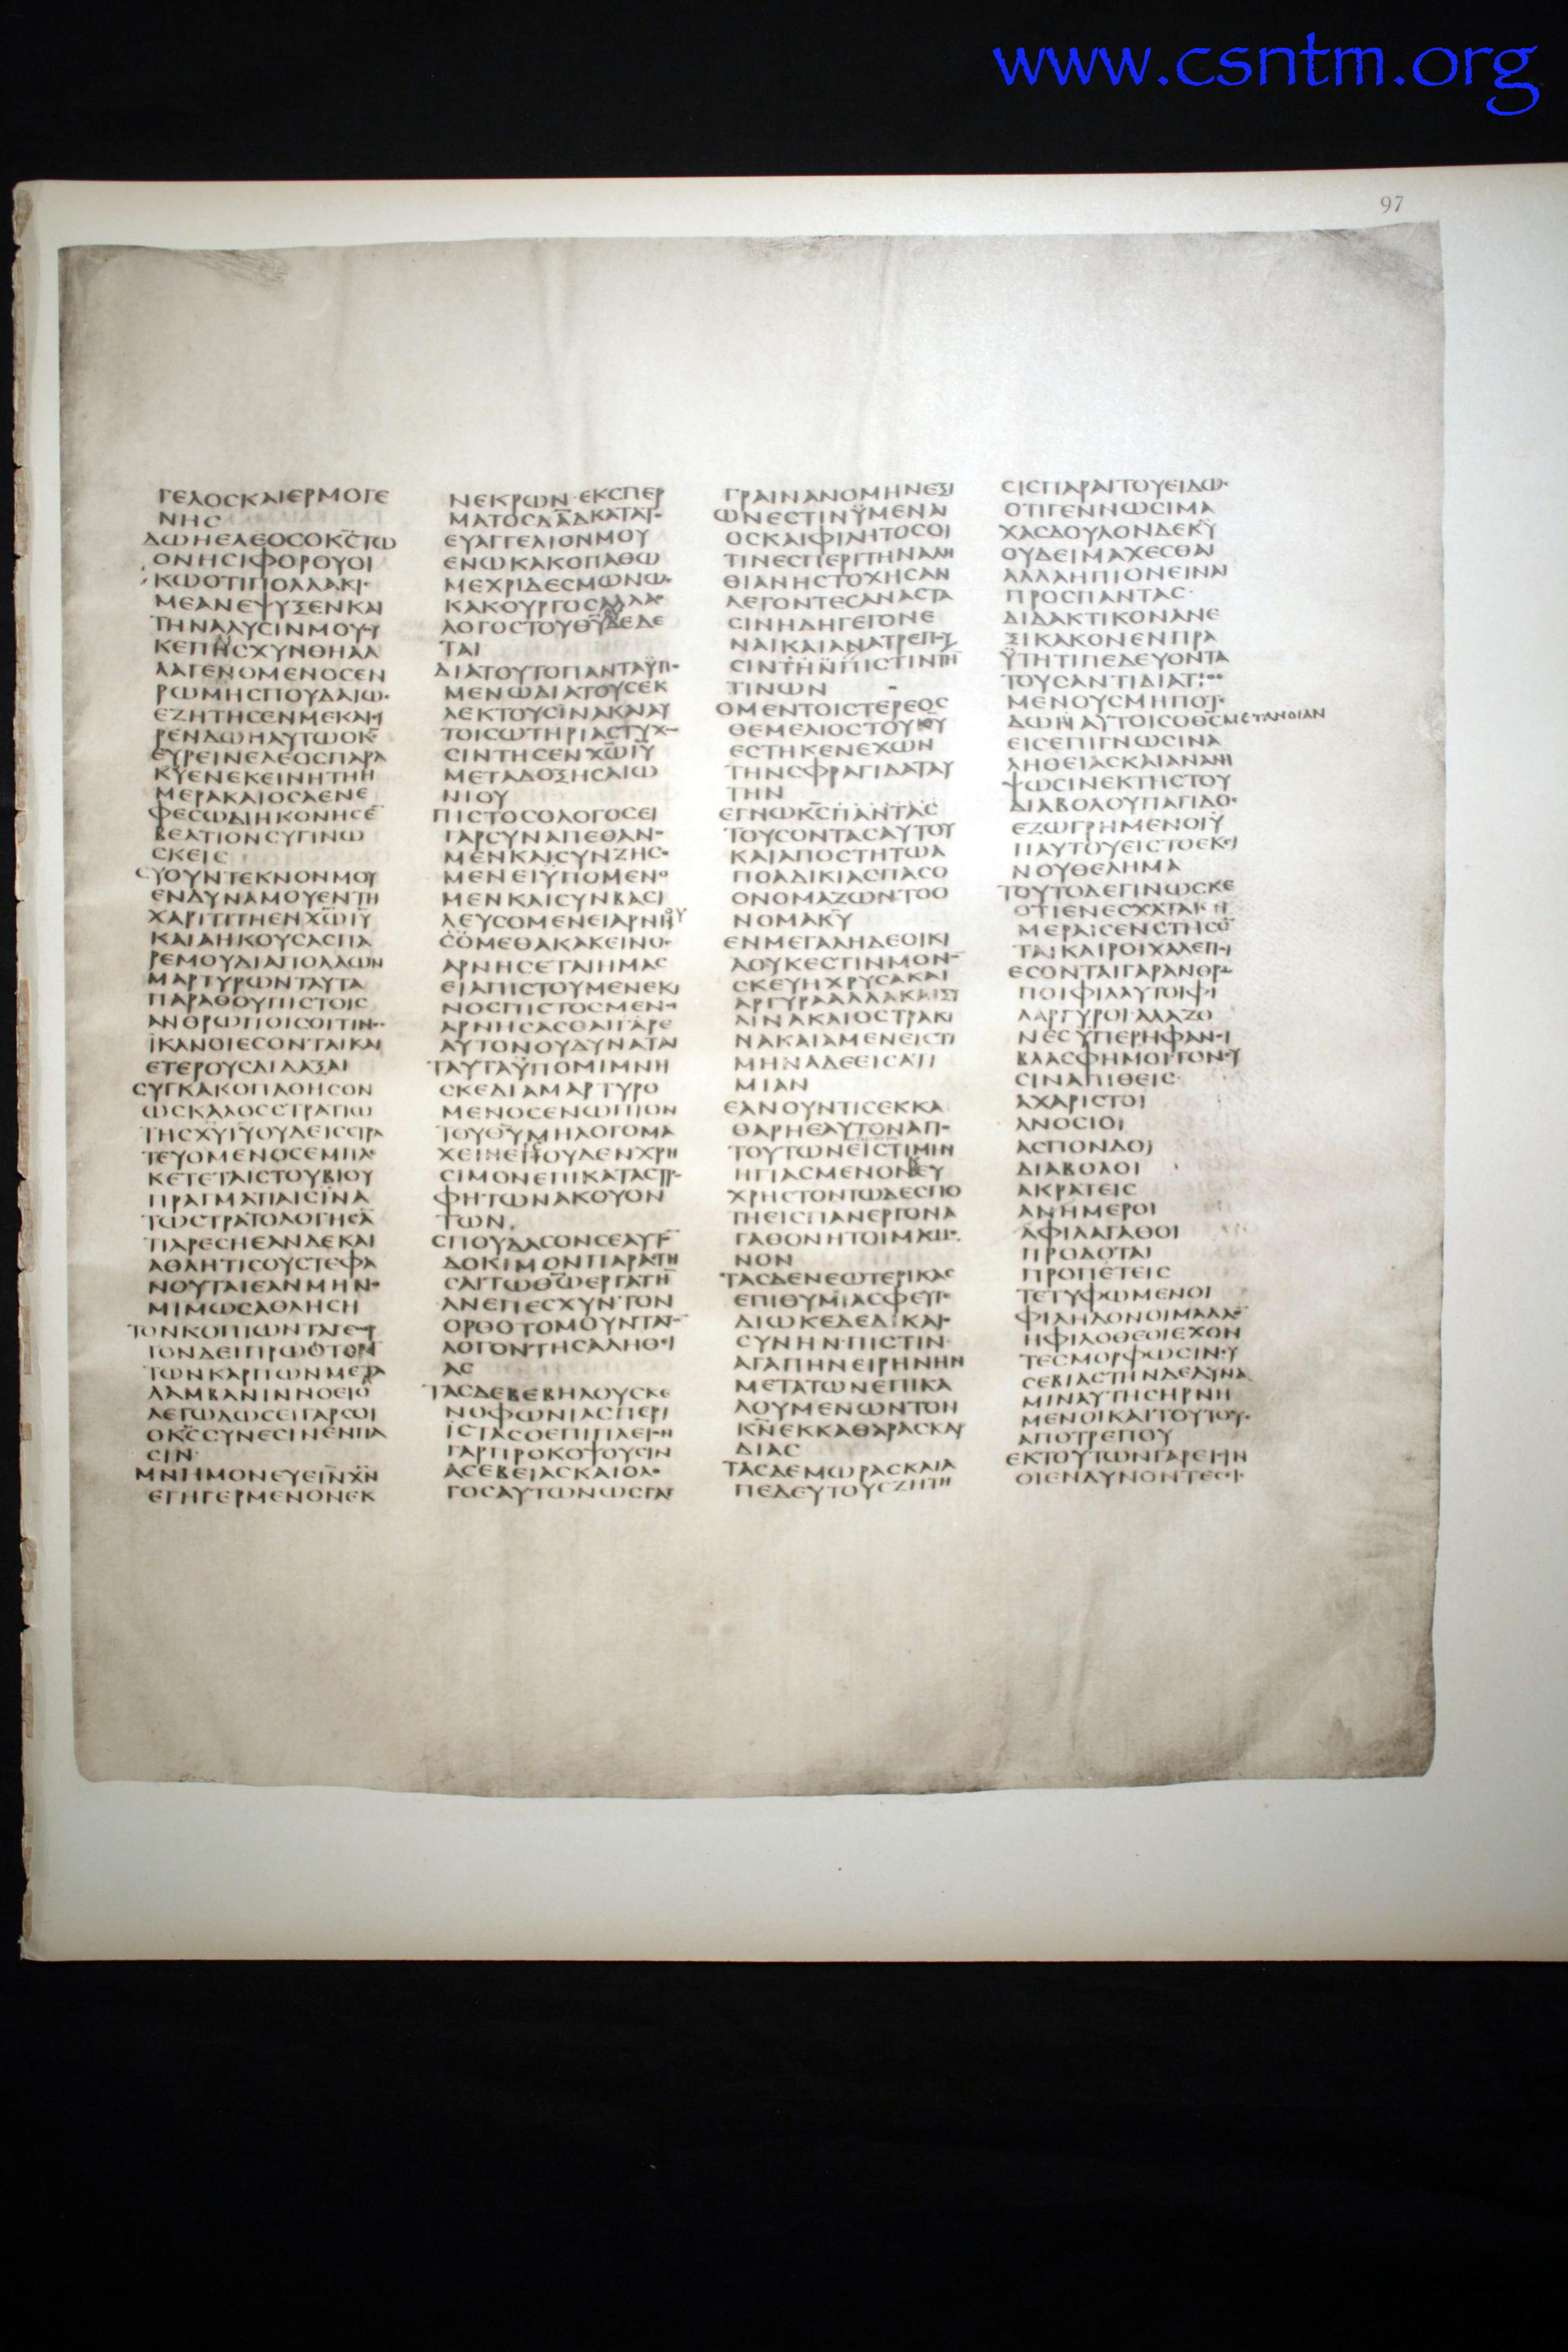 www.csntm.org
97
ΓΕΛΟCΚΑΙΕΡΜΟΓΕ
ΝΗC
ΔΩΗΕΛΕΟCΟΚCΤΩ
ΟΝΗCΙΦΟΡΟΥΟΙ
ΚΩΟΤΙΠΟΛΛΑΚΙ
ΜΕΑΝΕΨΥΞΕΝΚΑΙ
ΤΗΝΑΛΥCΙΝΜΟΥ
ΛΑΓΕΝΟΜΕΝΟCΕΝ
ΡΩΜΗCΠΟΥΔΑΙΩ
ΕΖΗΤΗCΕΝΜΕΚΑΙ
ΡΕΝΔΩΗΑΥΤΩΟΚC
ΕΥΡΕΙΝΕΛΕΟCΠΑΡΑ
ΚΥΕΝΕΚΕΙΝΗΤΗΗ
ΜΕΡΑΚΑΙΟCΑΕΝΕ
ΦΕCΩΔΙΗΚΟΝΗCΕ
ΒΕΛΤΙΟΝCΥΓΙΝΩ
CΚΕΙC
CΥΟΥΝΤΕΚΝΟΝΜΟΥ
ΕΝΔΥΝΑΜΟΥΕΝΤΗ
ΧΑΡΙΤΙΤΗΕΝΧΩΙΥ
ΚΑΙΑΗΚΟΥCΑCΠΑ
ΡΕΜΟΥΔΙΑΠΟΛΛΩΝ
ΜΑΡΤΥΡΩΝΤΑΥΤΑ
ΠΑΡΑΘΟΥΠΙCΤΟΙC
ΑΝΘΡΩΠΟΙCΟΙΤΙΝ
ΙΚΑΝΟΙΕCΟΝΤΑΙΚΑΙ
ΕΤΕΡΟΥCΔΙΔΑΞΑΙ
CΥΓΚΑΚΟΠΑΘΗCΟΝ
ΩCΚΑΛΟCCΤΡΑΤΙΩ
ΤΗCΧΥΙΥΟΥΔΕΙCCΤΡΑ
ΤΕΥΟΜΕΝΟCΕΜΠΛ
ΚΕΤΕΤΑΙCΤΟΥΒΙΟΥ
ΠΡΑΓΜΑΤΙΑΙCΙΝΑ
ΤΩCΤΡΑΤΟΛΟΓΗCΑ
ΤΙΑΡΕCΗΕΑΝΔΕΚΑΙ
ΑΘΛΗΤΙCΟΥCΤΕΦΑ
ΝΟΥΤΑΙΕΑΝΜΗΝ
ΜΙΜΩCΑΘΛΗCΗ
ΤΟΝΚΟΠΙΩΝΤΑΓΕ
ΤΩΝΚΑΡΠΩΝΜΕΤΑ
ΛΑΜΒΑΝΙΝΝΟΕΙΟ
ΛΕΓΩΔΩCΕΙΓΑΡCΟΙ
ΟΚCCΥΝΕCΙΝΕΝΠΑ
CΙΝ
ΜΝΗΜΟΝΕΥΕΙΝΧΝ
ΕΓΗΓΕΡΜΕΝΟΝΕΚ
ΝΕΚΡΩΝΕΚCΠΕΡ
ΜΑΤΟCΔΑΔΚΑΤΑΤ
ΕΥΑΓΓΕΛΙΟΝΜΟΥ
ΕΝΩΚΑΚΟΠΑΘΩ
ΜΕΧΡΙΔΕCΜΩΝΩ
ΚΑΚΟΥΡΓΟCΑΛΛΑ
ΛΟΓΟCΤΟΥΘΥΔΕΔΕ
ΤΑΙ
ΔΙΑΤΟΥΤΟΠΑΝΤΑΫΠ
ΜΕΝΩΔΙΑΤΟΥCΕΚ
ΛΕΚΤΟΥCΙΝΑΚΑΙΑΥ
ΤΟΙCΩΤΗΡΙΑCΤΥΧ
CΙΝΤΗCΕΝΧΩΙΥ
ΜΕΤΑΔΟΞΗCΑΙΩ
ΝΙΟΥ
ΠΙCΤΟCΟΛΟΓΟCΕΙ
ΓΑΡCΥΝΑΠΕΘΑΝ
ΜΕΝΚΑΙCΥΝΖΗC
ΜΕΝΕΙΫΠΟΜΕΝ
ΜΕΝΚΑΙCΥΝΒΑCΙ
CΟΜΕΘΑΚΑΚΕΙΝΟ
ΑΡΝΗCΕΤΑΙΗΜΑC
ΕΙΑΠΙCΤΟΥΜΕΝΕΚΙ
ΝΟCΠΙCΤΟCΜΕΝ
ΑΡΝΗCΑCΘΑΙΓΑΡΕ
ΑΥΤΟΝΟΥΔΥΝΑΤΑΙ
ΤΑΥΤΑΫΠΟΜΙΜΝΗ
CΚΕΔΙΑΜΑΡΤΥΡΟ
ΜΕΝΟCΕΝΩΠΙΟΝ
ΤΟΥΘΥΜΗΛΟΓΟΜΑ
CΙΜΟΝΕΠΙΚΑΤΑCΤΡ
ΦΗΤΩΝΑΚΟΥΟΝ
ΤΩΝ
CΠΟΥΔΑCΟΝCΕΑΥΤ
ΔΟΚΙΜΟΝΠΑΡΑΤΗ
CΑΙΤΩΘΩΕΡΓΑΤΗ
ΑΝΕΠΕCΧΥΝΤΟΝ
ΟΡΘΟΤΟΜΟΥΝΤΑΤ
ΛΟΓΟΝΤΗCΑΛΗΘΙ
ΑC
ΤΑCΔΕΒΕΒΗΛΟΥCΚΕ
ΝΟΦΩΝΙΑCΠΕΡΙ
ΙCΤΑCΟΕΠΙΠΛΕΙ
ΓΑΡΠΡΟΚΟΨΟΥCΙΝ
ΑCΕΒΕΙΑCΚΑΙΟΛ
ΓΟCΑΥΤΩΝΩCΓΑΓ
ΓΡΑΙΝΑΝΟΜΗΝΕΞΙ
ΩΝΕCΤΙΝΫΜΕΝΑΙ
ΟCΚΑΙΦΙΛΗΤΟCΟΙ
ΤΙΝΕCΠΕΡΙΤΗΝΑΛΗ
ΘΙΑΝΗCΤΟΧΗCΑΝ
ΛΕΓΟΝΤΕCΑΝΑCΤΑ
CΙΝΗΔΗΓΕΓΟΝΕ
ΝΑΙΚΑΙΑΝΑΤΡΕΠΟΥ
CΙΝΤΗΝΠΙCΤΙΝΤΗ
ΤΙΝΩΝ
ΟΜΕΝΤΟΙCΤΕΡΕΟC
ΘΕΜΕΛΙΟCΤΟΥΘΥ
ΕCΤΗΚΕΝΕΧΩΝ
ΤΗΝCΦΡΑΓΙΔΑΤΑΥ
ΤΗΝ
ΕΓΝΩΚCΠΑΝΤΑC
ΤΟΥCΟΝΤΑCΑΥΤΟΥ
ΚΑΙΑΠΟCΤΗΤΩΑ
ΠΟΑΔΙΚΙΑCΠΑCΟ
ΟΝΟΜΑΖΩΝΤΟΟ
ΝΟΜΑΚΥ
ΕΝΜΕΓΑΛΗΔΕΟΙΚΙ
ΑΟΥΚΕCΤΙΝΜΟΝ
CΚΕΥΗΧΡΥCΑΚΑΙ
ΑΡΓΥΡΑΑΛΛΑΚΑΙΞΥ
ΛΙΝΑΚΑΙΟCΤΡΑΚΙ
ΝΑΚΑΙΑΜΕΝΕΙCΤΙ
ΜΗΝΑΔΕΕΙCΑΤΙ
ΜΙΑΝ
ΕΑΝΟΥΝΤΙCΕΚΚΑ
ΘΑΡΗΕΑΥΤΟΝΑΠ
ΤΟΥΤΩΝΕΙCΤΙΜΗΝ
ΧΡΗCΤΟΝΤΩΔΕCΠΟ
ΤΗΕΙCΠΑΝΕΡΓΟΝΑ
ΓΑΘΟΝΗΤΟΙΜΑCΜ
ΝΟΝ
ΤΑCΔΕΝΕΩΤΕΡΙΚΑC
ΕΠΙΘΥΜΙΑCΦΕΥΓ
ΔΙΩΚΕΔΕΔΙΚΑΙ
CΥΝΗΝΠΙCΤΙΝ
ΑΓΑΠΗΝΕΙΡΗΝΗΝ
ΜΕΤΑΤΩΝΕΠΙΚΑ
ΛΟΥΜΕΝΩΝΤΟΝ
ΚΝΕΚΚΑΘΑΡΑCΚΑΡ
ΔΙΑC
ΤΑCΔΕΜΩΡΑCΚΑΙΑ
ΠΕΔΕΥΤΟΥCΖΗΤΗ
CΙCΠΑΡΑΙΤΟΥΕΙΔΩ
ΟΤΙΓΕΝΝΩCΙΜΑ
ΧΑCΔΟΥΛΟΝΔΕΚΥ
ΟΥΔΕΙΜΑΧΕCΘΑΙ
ΑΛΛΑΗΠΙΟΝΕΙΝΑΙ
ΠΡΟCΠΑΝΤΑC
ΔΙΔΑΚΤΙΚΟΝΑΝΕ
ΞΙΚΑΚΟΝΕΝΠΡΑ
ΫΤΗΤΙΠΕΔΕΥΟΝΤΑ
ΤΟΥCΑΝΤΙΔΙΑΤΙ
ΜΕΝΟΥCΜΗΠΟΤ
ΔΩΗΑΥΤΟΙCΟΘCΜΕΤΑΝΟΙΑΝ
ΕΙCΕΠΙΓΝΩCΙΝΑ
ΛΗΘΕΙΑCΚΑΙΑΝΑΝΗ
ΨΩCΙΝΕΚΤΗCΤΟΥ
ΔΙΑΒΟΛΟΥΠΑΓΙΔΟ
ΕΖΩΓΡΗΜΕΝΟΙΫ
ΠΑΥΤΟΥΕΙCΤΟΕΚΙ
ΝΟΥΘΕΛΗΜΑ
ΤΟΥΤΟΔΕΓΙΝΩCΚΕ
ΟΤΙΕΝΕCΧΑΤΑΙC
ΜΕΡΑΙCΕΝCΤΗCΟ
ΤΑΙΚΑΙΡΟΙΧΑΛΕΠΙ
ΕCΟΝΤΑΙΓΑΡΑΝΘΡΩ
ΠΟΙΦΙΛΑΥΤΟΙΦΙ
ΛΑΡΓΥΡΟΙΑΛΑΖΟ
ΝΕCΫΠΕΡΗΦΑΝΙ
ΒΛΑCΦΗΜΟΙΓΟΝΥ
CΙΝΑΠΙΘΕΙC
ΑΧΑΡΙCΤΟΙ
ΑΝΟCΙΟΙ
ΑCΠΟΝΔΟΙ
ΔΙΑΒΟΛΟΙ
ΑΚΡΑΤΕΙC
ΑΝΗΜΕΡΟΙ
ΑΦΙΛΑΓΑΘΟΙ
ΠΡΟΔΟΤΑΙ
ΠΡΟΠΕΤΕΙC
ΤΕΤΥΦΩΜΕΝΟΙ
ΦΙΛΗΔΟΝΟΙΜΑΛΛ
ΗΦΙΛΟΘΕΟΙΕΧΟΝ
ΤΕCΜΟΡΦΩCΙΝΥ
CΕΒΙΑCΤΗΝΔΕΔΥΝΑ
ΜΙΝΑΥΤΗCΗΡΝΗ
ΜΕΝΟΙΚΑΙΤΟΥΤΟΥ
ΑΠΟΤΡΕΠΟΥ
ΕΚΤΟΥΤΩΝΓΑΡΕΙCΙΝ
ΟΙΕΝΔΥΝΟΝΤΕC